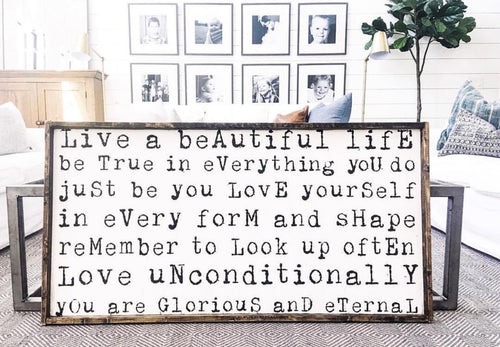 Live a beAutiful lifE
be True in eVerything yoU do
juSt be you LovE yourSelf
in eVery forM and sHape
reMember to Look up oftEn
Love uNconditionallY
yOu are GloriouS anD eTernaL